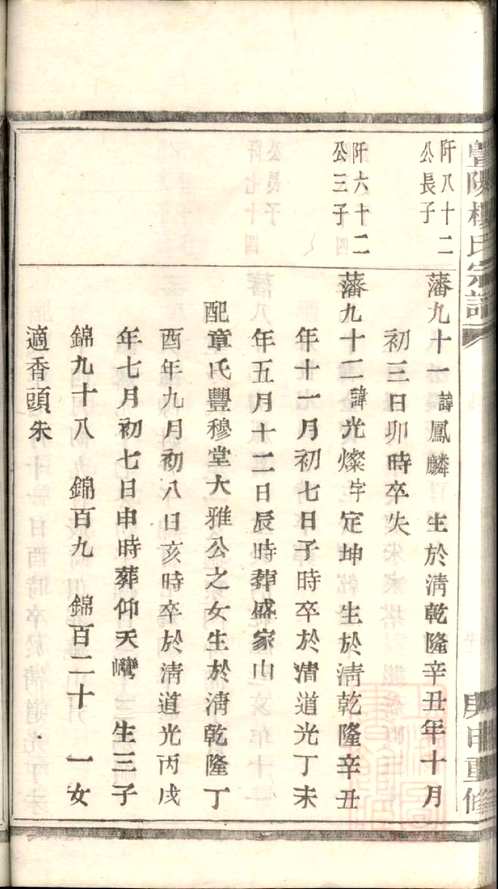 暨陽樓氏宗譜
庚申重修
阡八十二
公長子
藩九十一諱鳳麟 生於清乾隆辛丑年十月
初三日卯時卒失
阡六十二
公三子
藩九十二諱光燦字定坤 生於清乾隆辛丑
年十一月初七日子時卒於清道光丁未
年五月十二日辰時葬盛家山
配章氏豐穆堂大雅公之女生於清乾隆丁
酉年九月初八日亥時卒於清道光丙戌
年七月初七日申時葬仰天灣 生三子
錦九十八 錦百九 錦百二十 一女
適香頭朱